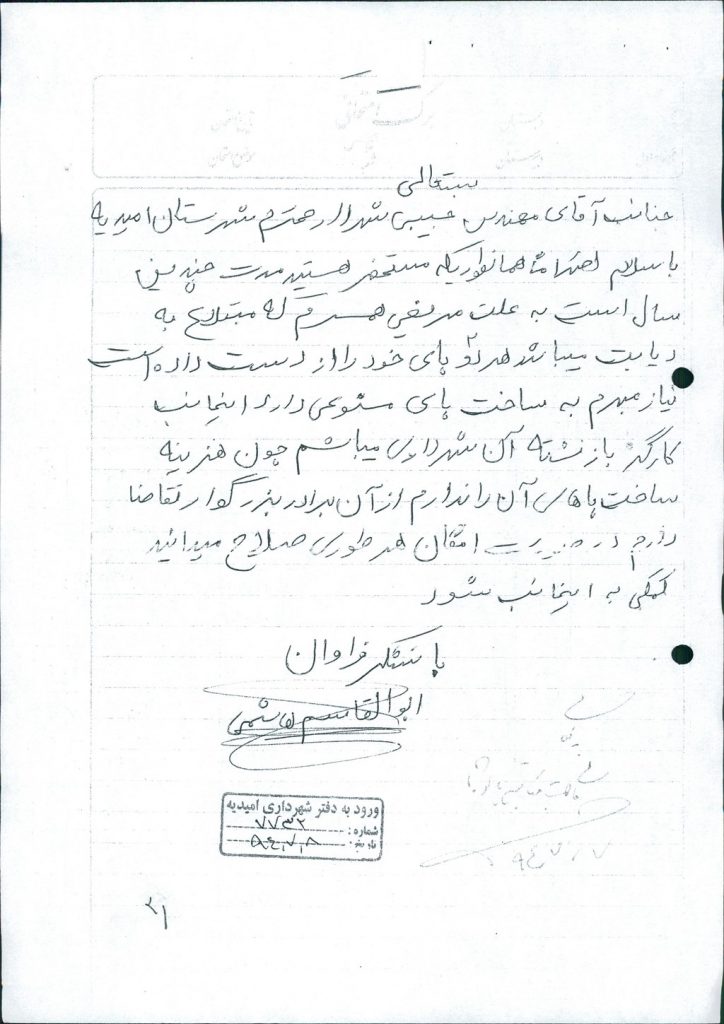 بسمتعالی
جناب آقای مهندس حبیبی شهردار محترم شهرستان امیدیه
با سلام احتراماً همانطوریکه مستحضر هستید مدت چندین
سال است به علت مریضی همسرم که مبتلا به
دیابت میباشد هر دو پای خود را از دست داده است
نیاز مبرم به ساخت پای مصنوعی دارد اینجانب
کارگر بازنشته آن شهرداری میباشم چون هزینه
ساخت پاهای آن را ندارم از آن برادر بزرگوار تقاضا
دارم در صورت امکان هر طوری صلاح میدانید
کمکی به اینجانب شود
با تشکر فراوان
ابوالقاسم هاشمی
ورود به دفتر شهرداری امیدیه
شماره: ۷۷۳۲
تاریخ: ۹۴،۷،۸
۹۴،۷،۷